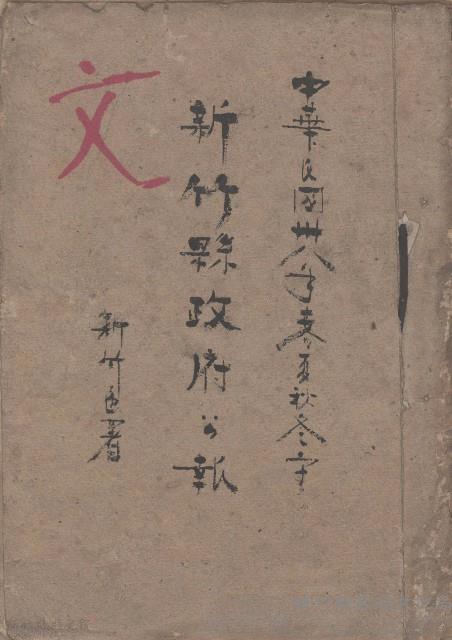 中華民國卅八年春夏秋冬字
新竹縣政府公報
新竹區署
文